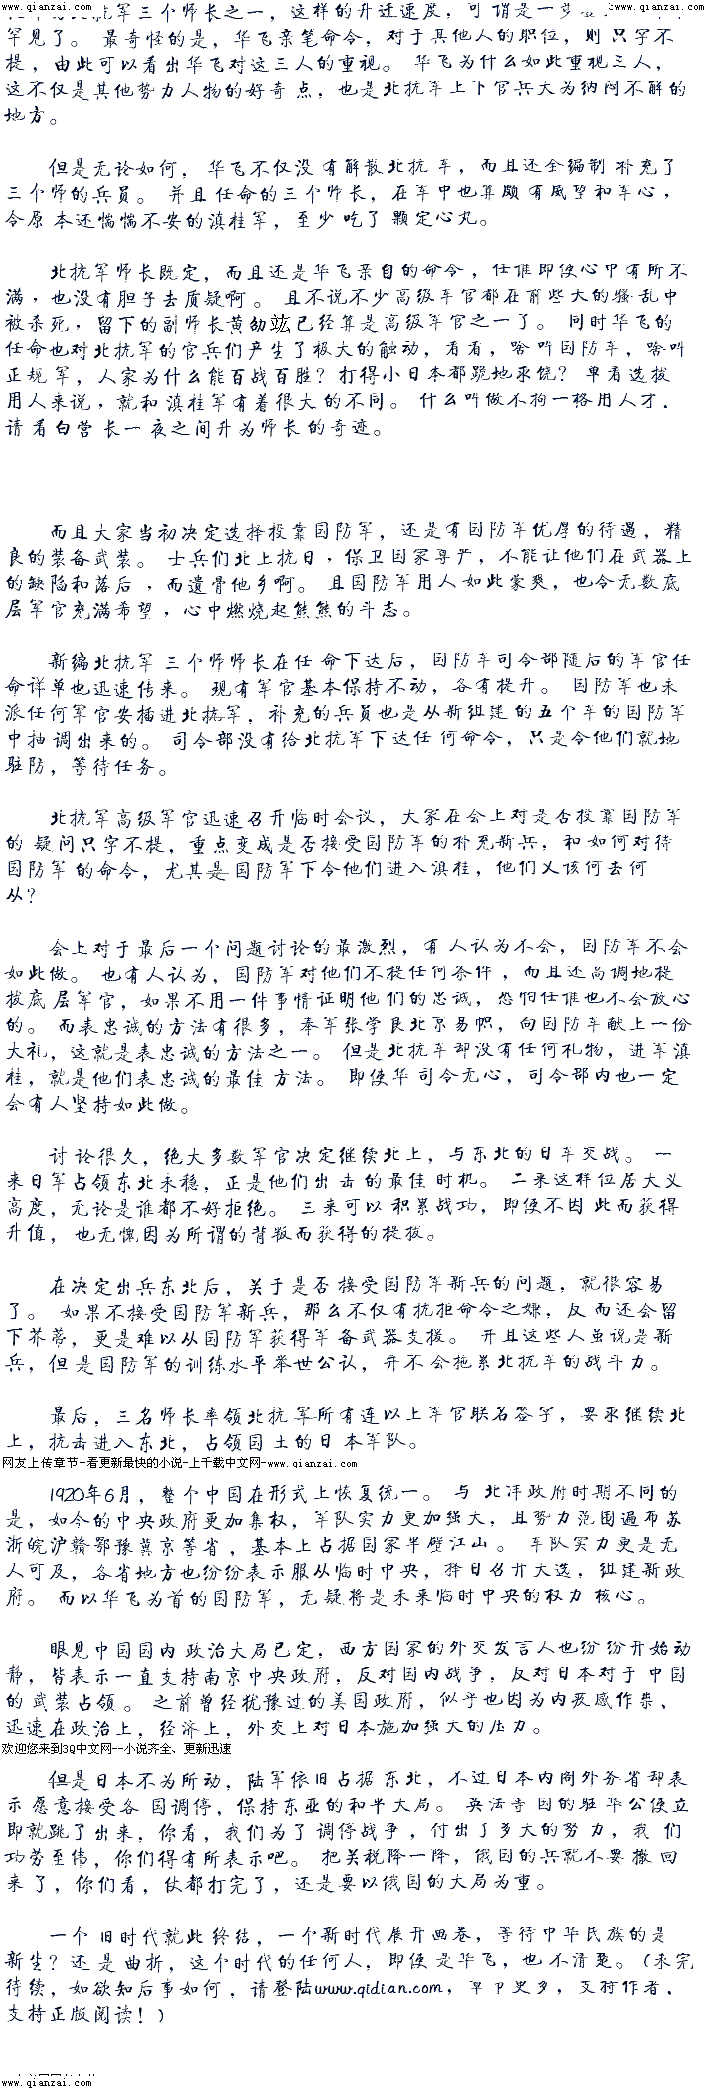 www.qianzai.com www.qianzai.com
罕见了。 最奇怪的是，华飞亲笔命令，对于其他人的职位，则只字不
提，由此可以看出华飞对这三人的重视。 华飞为什么如此重视三人，
这不仅是其他势力人物的好奇点，也是北抗军上下官兵大为纳闷不解的
地方。
但是无论如何， 华飞不仅没有解散北抗军，而且还全编制补充了
三个师的兵员。 并且任命的三个师长，在军中也算颇有威望和军心，
令原本还惴惴不安的滇桂军，至少吃了颗定心丸。
北抗军师长既定，而且还是华飞亲自的命令，任谁即使心中有所不
满，也没有胆子去质疑啊。 且不说不少高级军官都在前些大的骚乱中
被杀死，留下的副师长黄劭竑已经算是高级军官之一了。 同时华飞的
任命也对北抗军的官兵们产生了极大的触动，看看，啥叫国防军，啥叫
正规军，人家为什么能百战百胜？打得小日本都跪地求饶？单看选拔
用人来说，就和滇桂军有着很大的不同。 什么叫做不拘一格用人才，
请看白营长一夜之间升为师长的奇迹。
而且大家当初决定选择投靠国防军，还是有国防军优厚的待遇，精
良的装备武装。 士兵们北上抗日，保卫国家尊严，不能让他们在武器上
的缺陷和落后，而遗骨他乡啊。 且国防军用人如此豪爽，也令无数底
层军官充满希望，心中燃烧起熊熊的斗志。
新编北抗军三个师师长在任命下达后，国防军司令部随后的军官任
命详单也迅速传来。 现有军官基本保持不动，各有提升。 国防军也未
派任何军官安插进北抗军，补充的兵员也是从新组建的五个军的国防军
中抽调出来的。 司令部没有给北抗军下达任何命令，只是令他们就地
驻防，等待任务。
北抗军高级军官迅速召开临时会议，大家在会上对是否投靠国防军
的疑问只字不提，重点变成是否接受国防军的补充新兵，和如何对待
国防军的命令，尤其是国防军下令他们进入滇桂，他们又该何去何
从？
会上对于最后一个问题讨论的最激烈，有人认为不会，国防军不会
如此做。 也有人认为，国防军对他们不提任何条件，而且还高调地提
拔底层军官，如果不用一件事情证明他们的忠诚，恐怕任谁也不会放心
的。 而表忠诚的方法有很多，奉军张学良北京易帜，向国防军献上一份
大礼，这就是表忠诚的方法之一。 但是北抗军却没有任何礼物，进军滇
桂，就是他们表忠诚的最佳方法。 即使华司令无心，司令部内也一定
会有人坚持如此做。
讨论很久，绝大多数军官决定继续北上，与东北的日军交战。 一
来日军占领东北未稳，正是他们出击的最佳时机。 二来这样位居大义
高度，无论是谁都不好拒绝。 三来可以积累战功，即使不因此而获得
升值，也无愧因为所谓的背叛而获得的提拔。
在决定出兵东北后，关于是否接受国防军新兵的问题，就很容易
了。 如果不接受国防军新兵，那么不仅有抗拒命令之嫌，反而还会留
下芥蒂，更是难以从国防军获得军备武器支援。 并且这些人虽说是新
兵，但是国防军的训练水平举世公认，并不会拖累北抗军的战斗力。
最后，三名师长率领北抗军所有连以上军官联名签字，要求继续北
上，抗击进入东北，占领国土的日本军队。
网友上传章节-看更新最快的小说-上千载中文网-www.qianzai.com
1920年6月，整个中国在形式上恢复统一。 与北洋政府时期不同的
是，如今的中央政府更加集权，军队实力更加强大，且势力范围遍布苏
浙皖沪赣鄂豫冀京等省，基本上占据国家半壁江山。 军队实力更是无
人可及，各省地方也纷纷表示服从临时中央，择日召开大选，组建新政
府。 而以华飞为首的国防军，无疑将是未来临时中央的权力核心。
眼见中国国内政治大局已定，西方国家的外交发言人也纷纷开始动
静，皆表示一直支持南京中央政府，反对国内战争，反对日本对于中国
的武装占领。 之前曾经犹豫过的美国政府，似乎也因为内疚感作祟，
迅速在政治上，经济上，外交上对日本施加强大的压力。
欢迎您来到3Q中文网--小说齐全、更新迅速
但是日本不为所动，陆军依旧占据东北，不过日本内阁外务省却表
示愿意接受各国调停，保持东亚的和平大局。 英法等国的驻华公使立
即就跳了出来，你看，我们为了调停战争，付出了多大的努力，我们
功劳至伟，你们得有所表示吧。 把关税降一降，俄国的兵就不要撤回
来了，你们看，仗都打完了，还是要以俄国的大局为重。
一个旧时代就此终结，一个新时代展开画卷，等待中华民族的是
新生？还是曲折，这个时代的任何人，即使是华飞，也不清楚。（未完
待续，如欲知后事如何，请登陆www.qidian.com，章节更多，支持作者，
支持正版阅读！）
www.qianzai.com